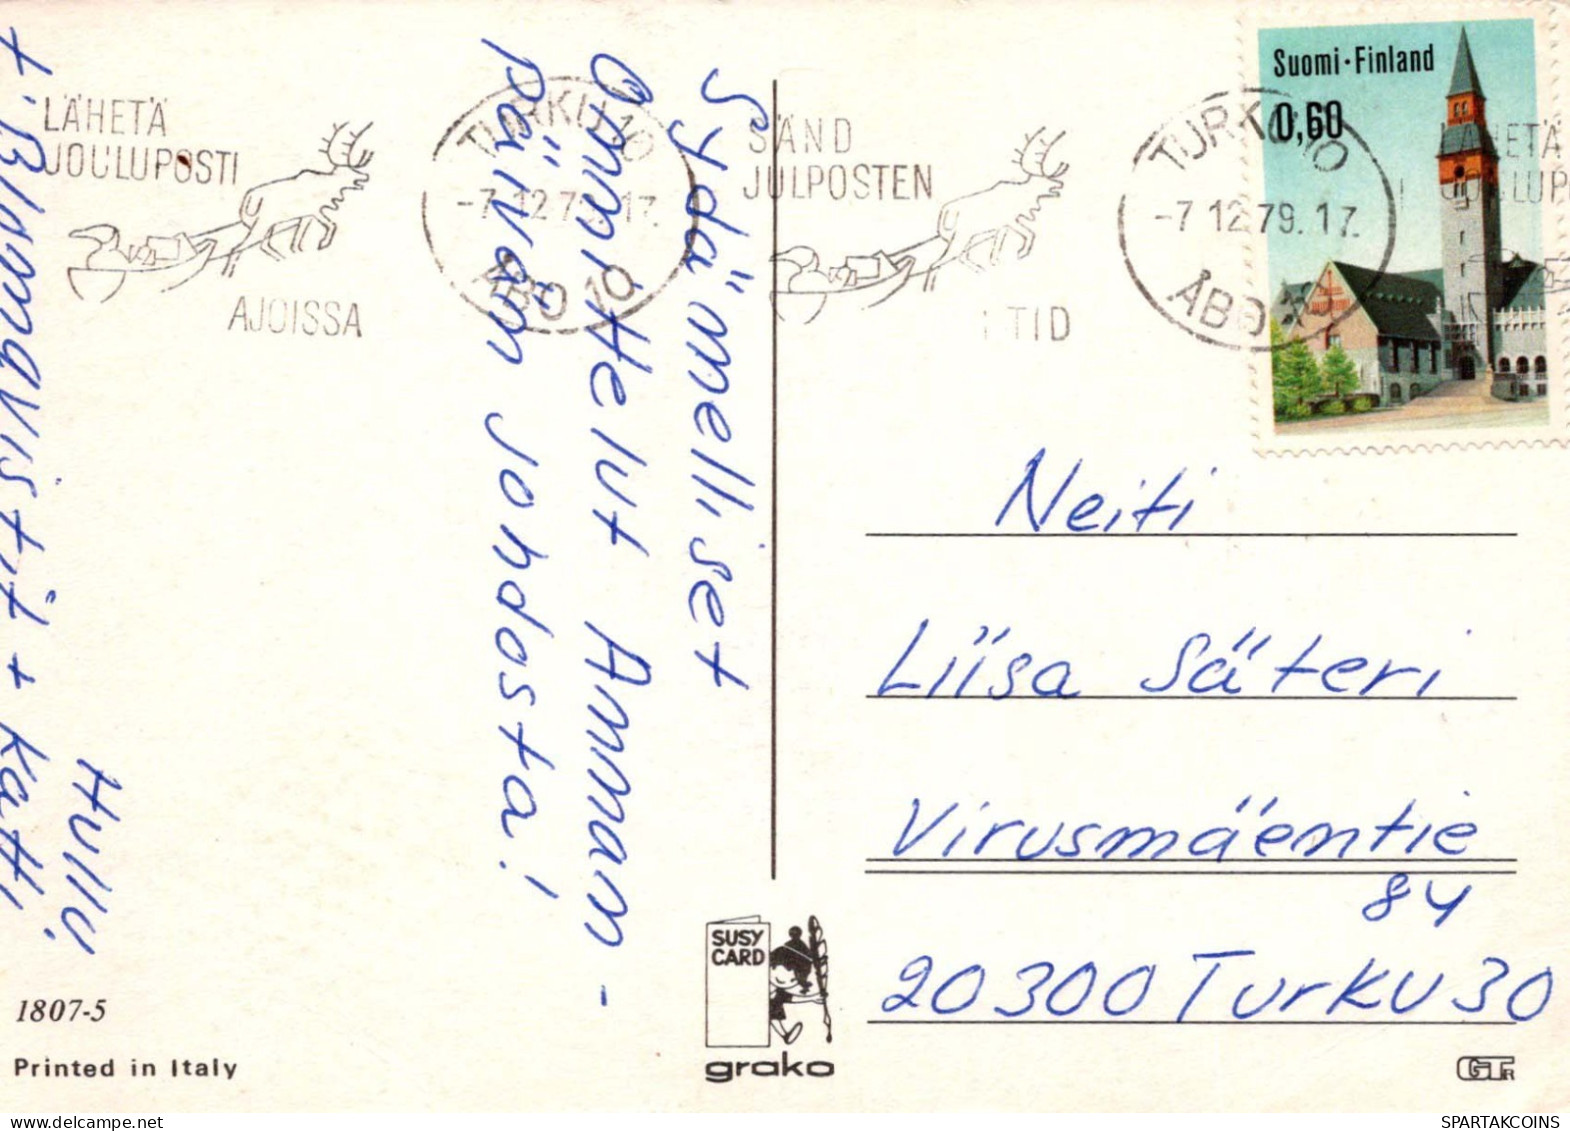 LÄHETÄ
JOULUPOSTI
AJOISSA
TURKU 10
-7.12.79.17.
ÅBO 10
SÄND
JULPOSTEN
I TID
TURKU 10
-7.12.79.17.
ÅBO 10
LÄHETÄ
JOULUP
Suomi·Finland
0,60
Sydämelliset
Onnittelut Annan-
päivän johdosta!
Hullu,
+ Katti
Neiti
Liisa Säteri
Virusmäentie
84
20300 Turku 30
SUSY
CARD
grako
1807-5
Printed in Italy
SPARTAKCOINS